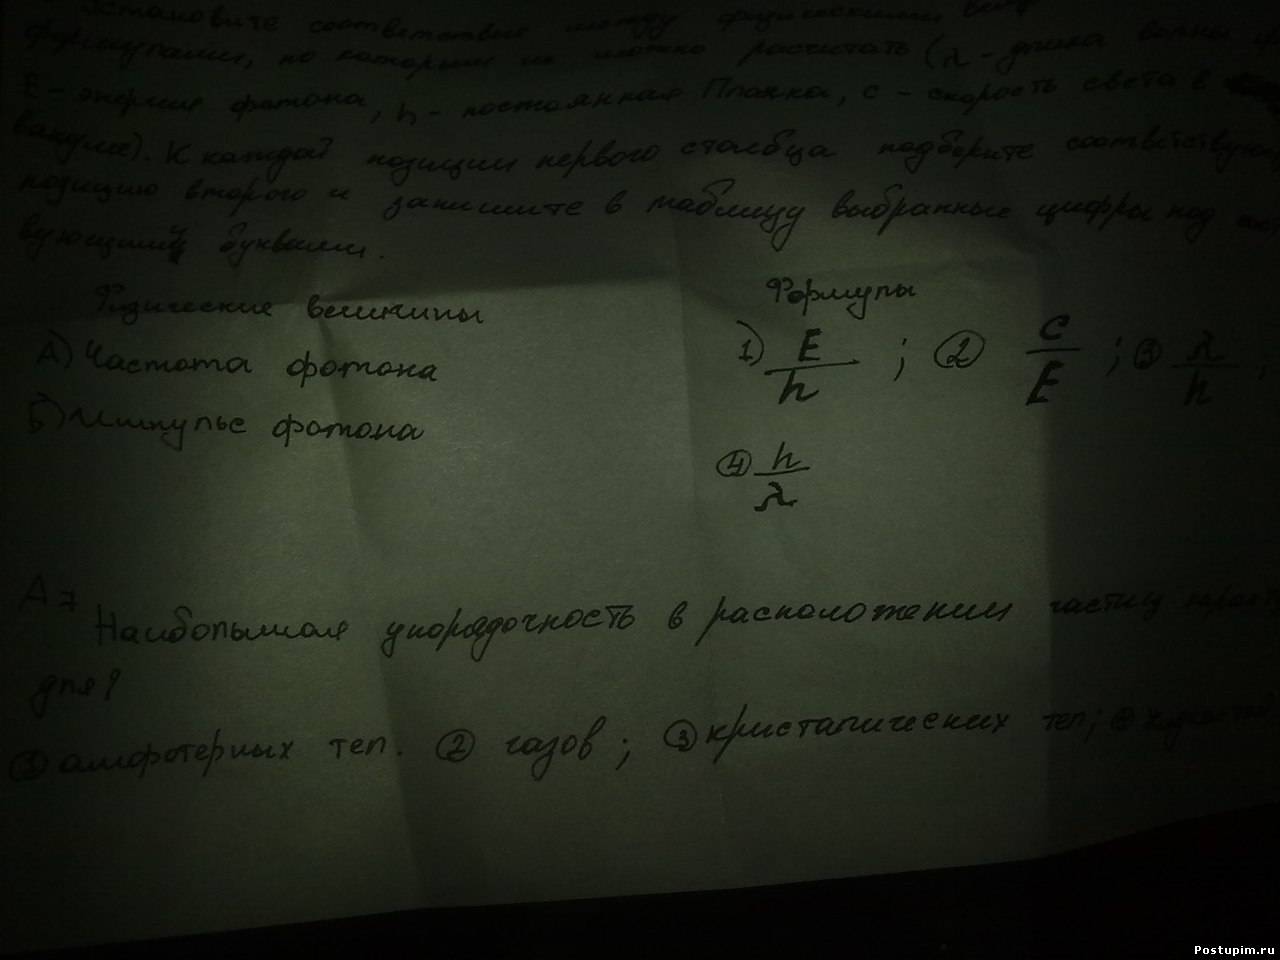 установите соответствие между физическими
формулами, по которым их можно расчитать (λ - длина волны
E - энергия фотона, h - постоянная Планка, с - скорость света в
вакууме). К каждой позиции первого столбца подберите соответствую
позицию второго и запишите в таблицу выбранные цифры под
вующими буквами.
Физические величины
Формулы
А) Частота фотона
1) E/h ; 2 C/E ; 3 λ/h ;
Б) Импульс фотона
4 h/λ
А7
Наибольшая упорядочность в расположении частиц
для?
1 амфотерных тел. 2 газов ; 3 кристалических тел; 4
Postupim.ru